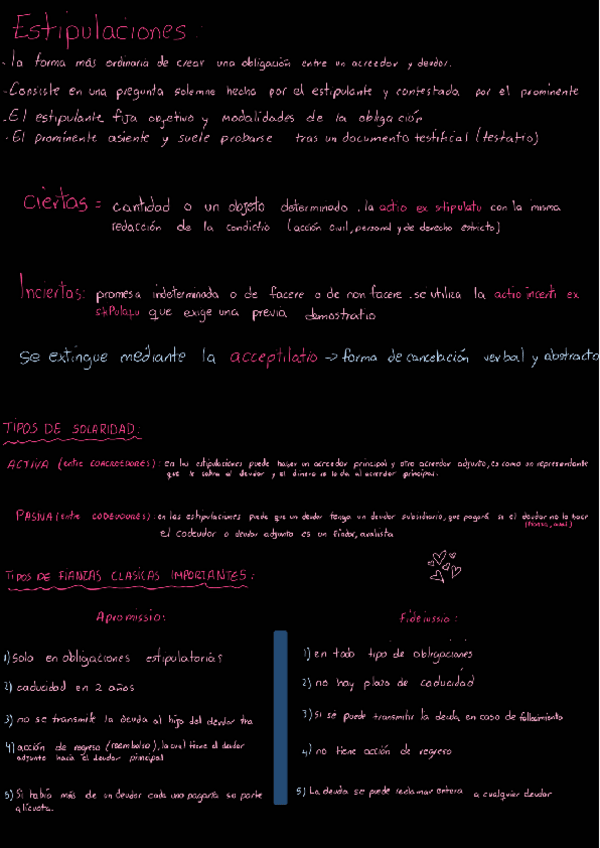 Estipulaciones:
. la forma más ordinaria de crear una obligación entre un acreedor y deudor.
. Consiste en una pregunta solemne hecha por el estipulante y contestada por el prominente
. El estipulante fija objetivo y modalidades de la obligación
. El prominente asiente y suele probarse tras un documento testificial (testatio)
ciertas = cantidad o un objeto determinado . la actio ex stipulatu con la misma
redacción de la condictio (acción civil, personal y de derecho estricto)
Inciertas: promesa indeterminada o de facere o de non facere . se utiliza la actio incerti ex
stipulatu que exige una previa demostratio
se extingue mediante la acceptilatio → forma de cancelación verbal y abstracto
TIPOS DE SOLARIDAD:
ACTIVA (entre COACREEDORES): en las estipulaciones puede haber un acreedor principal y otro acreedor adjunto, es como un representante
que le cobra al deudor y el dinero se lo da al acreedor principal.
PASIVA (entre CODEUDORES): en las estipulaciones puede que un deudor tenga un deudor subsidiario, que pagará si el deudor no lo hace
el codeudor o deudor adjunto es un fiador, avalista
TIPOS DE FIANZAS CLASICAS IMPORTANTES:
Apromissio:
Fideiussio:
1) Solo en obligaciones estipulatorias
1) en todo tipo de obligaciones
2) caducidad en 2 años
2) no hay plazo de caducidad
3) no se transmite la deuda al hijo del deudor tra
3) Si se puede transmitir la deuda, en caso de fallecimiento
4) acción de regreso (reembolso), la cual tiene el deudor
adjunto hacia el deudor principal
4) no tiene acción de regreso
5) Si había más de un deudor cada uno pagaría su parte
alícuota.
5) La deuda se puede reclamar entera a cualquier deudor